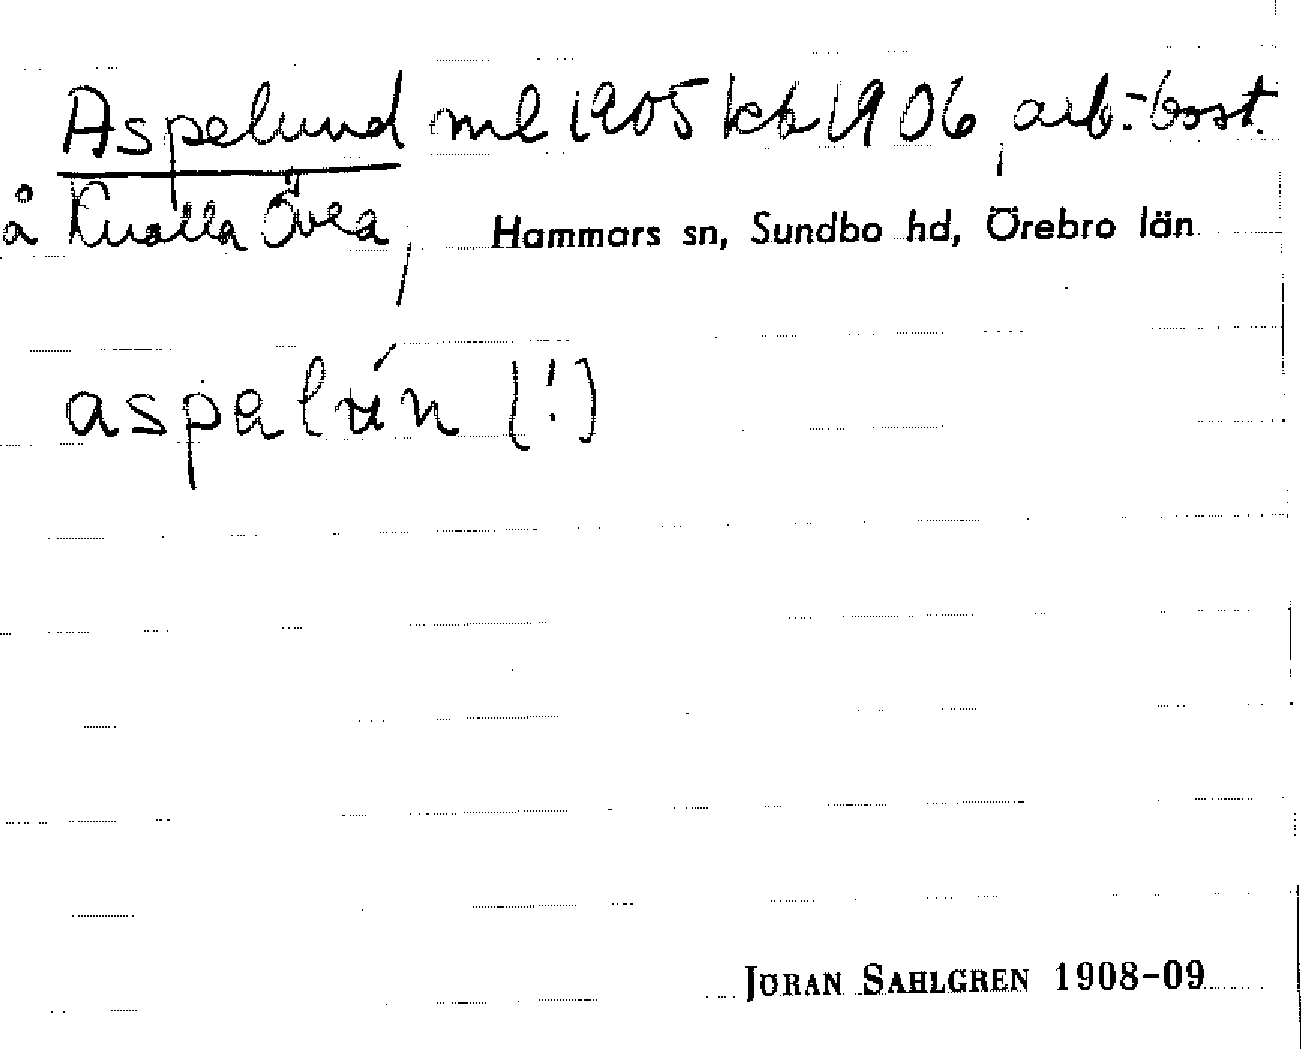 Aspelund ml 1905 kb 1906, arb.-bost.
å Knalla Övra, Hammars sn, Sundbo hd, Örebro län
aspalún (!)
JÖRAN SAHLGREN 1908-09